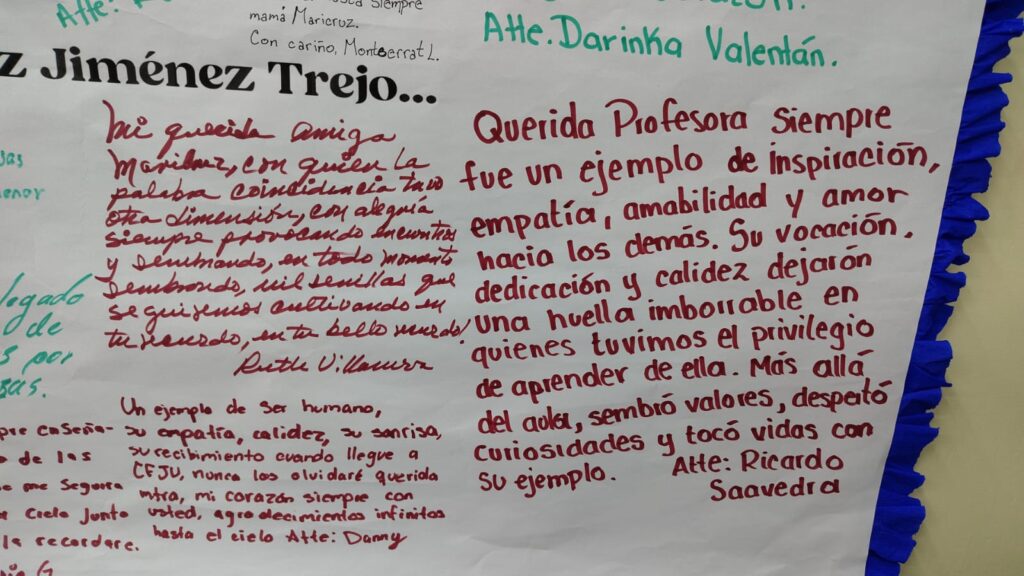 Siempre
mamá Maricruz.
Con cariño, Montserrat L.
Atte:
Atte. Darinka Valentán.
z Jiménez Trejo...
Mi querida amiga
Maricruz, con quien la
palabra coincidencia tuvo
otra dimensión, con alegría
siempre provocando encuentros
y sembrando, en todo momento
sembrando, mil semillas que
seguiremos cultivando en
tu recuerdo, en tu bello mundo!
Ruth Villanueva
Querida Profesora siempre
fue un ejemplo de inspiración,
empatía, amabilidad y amor
hacia los demás. Su vocación,
dedicación y calidez dejarón
una huella imborrable en
quienes tuvimos el privilegio
de aprender de ella. Más allá
del aula, sembró valores, despertó
curiosidades y tocó vidas con
su ejemplo.
Atte: Ricardo
Saavedra
legado
de
s por
sas.
Un ejemplo de ser humano,
su empatía, calidez, su sonrisa,
su recibimiento cuando llegue a
CFJU, nunca los olvidaré querida
mtra, mi corazón siempre con
usted, agradecimientos infinitos
hasta el cielo Atte: Danny
pre enseña-
o de las
me seguira
Cielo Junto
la recordare.